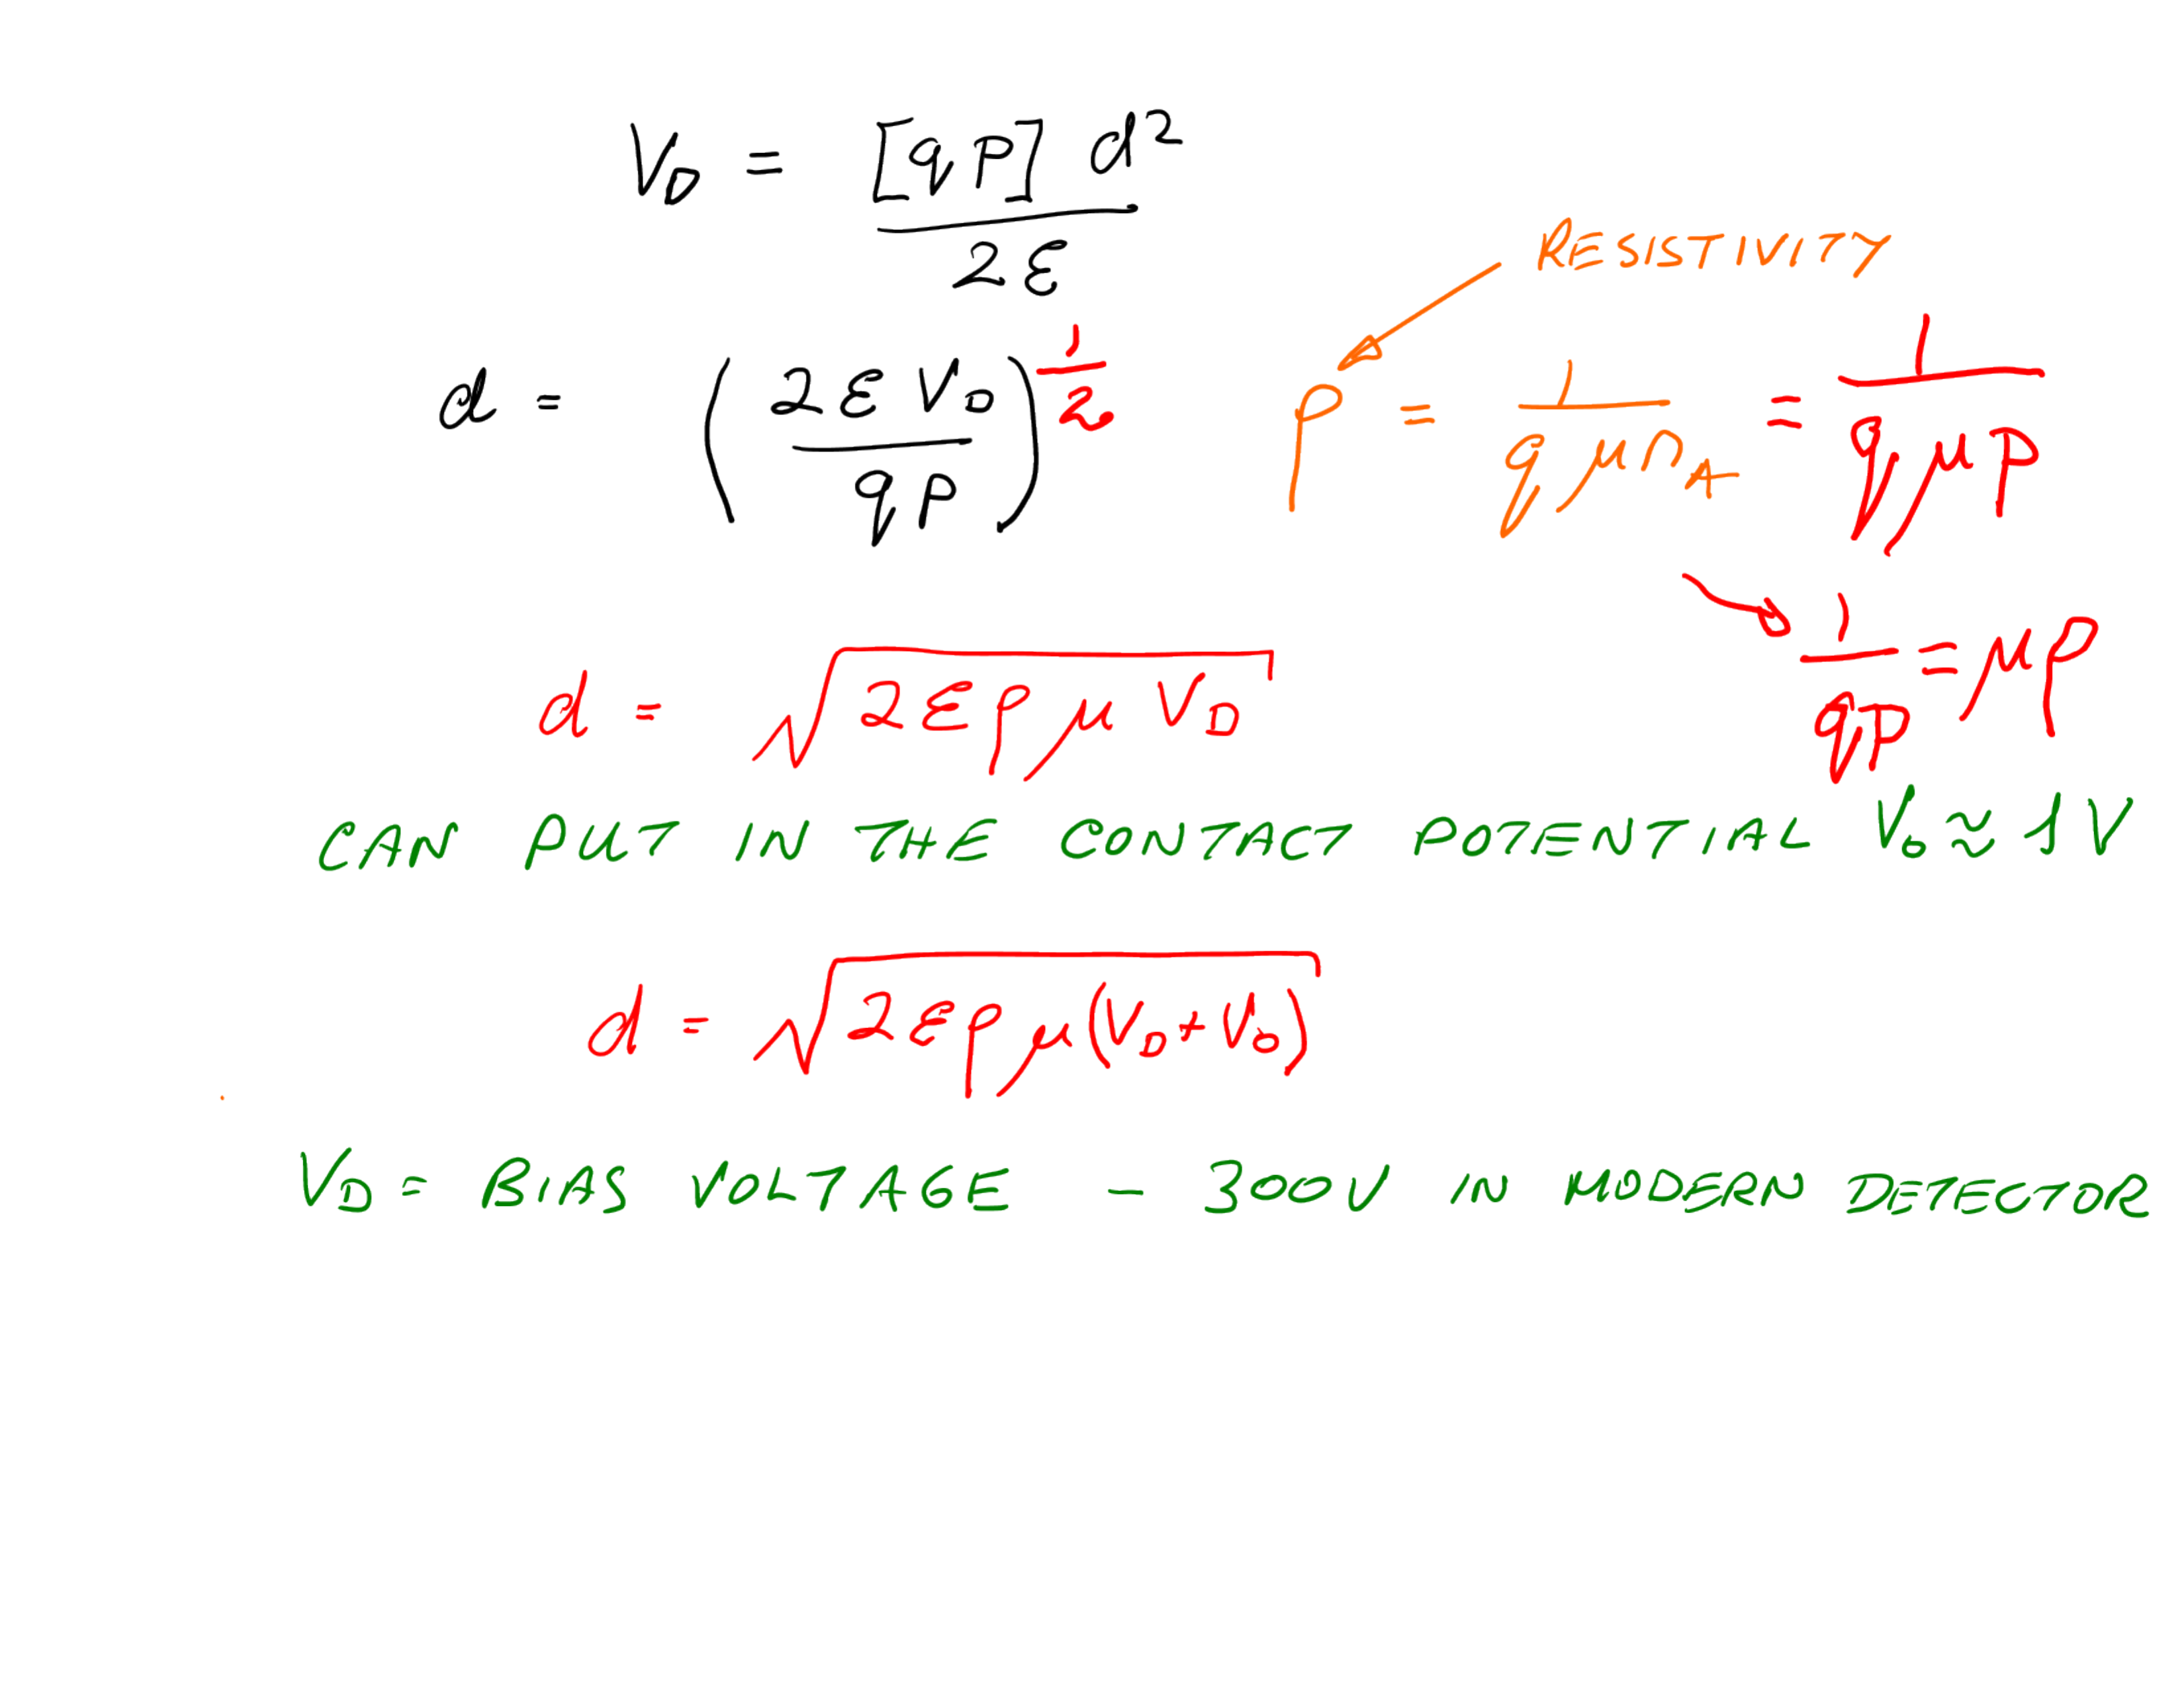 V_D = [qp] d² / 2ε
RESISTIVITY
d = (2εV_D / qp)^{1/2}
ρ = 1 / qμn_A = 1 / qμp
1 / qp = μρ
d = √(2ερμV_D)
CAN PUT IN THE CONTACT POTENTIAL V₀ ≈ 1V
d = √(2ερμ(V_D + V₀))
V_D = BIAS VOLTAGE – 300V IN MODERN DETECTOR